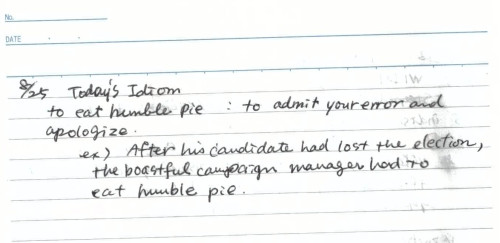 No.
DATE . .
8/25 Today's Idiom
to eat humble pie : to admit your error and
apologize.
ex) After his candidate had lost the election,
the boastful campaign manager had to
eat humble pie.